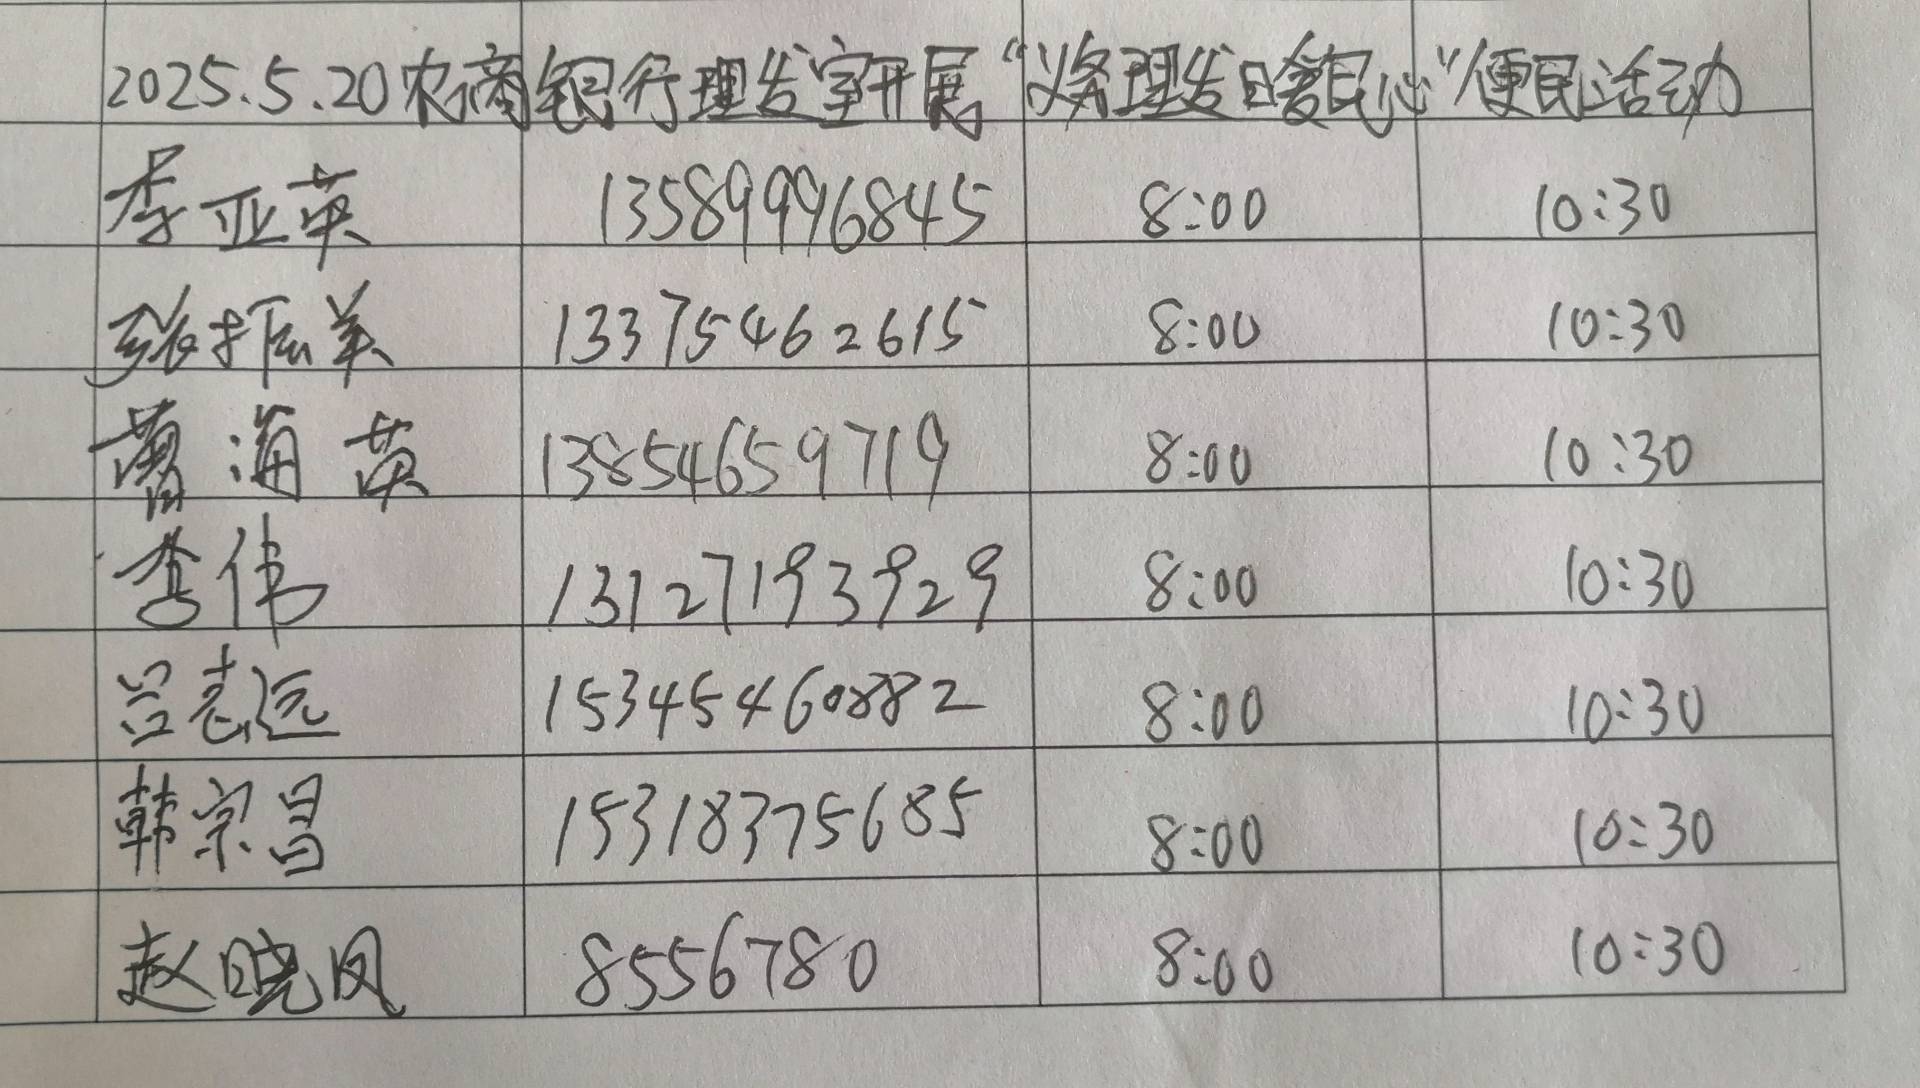 2025.5.20农商银行理发室开展“义务理发日暖民心”便民活动
李亚英 13589996845 8:00 10:30
张振美 13375462615 8:00 10:30
海英 13854659719 8:00 10:30
李伟 13127193929 8:00 10:30
吕志远 15345460882 8:00 10:30
韩宗昌 15318375685 8:00 10:30
赵晓凤 8556780 8:00 10:30